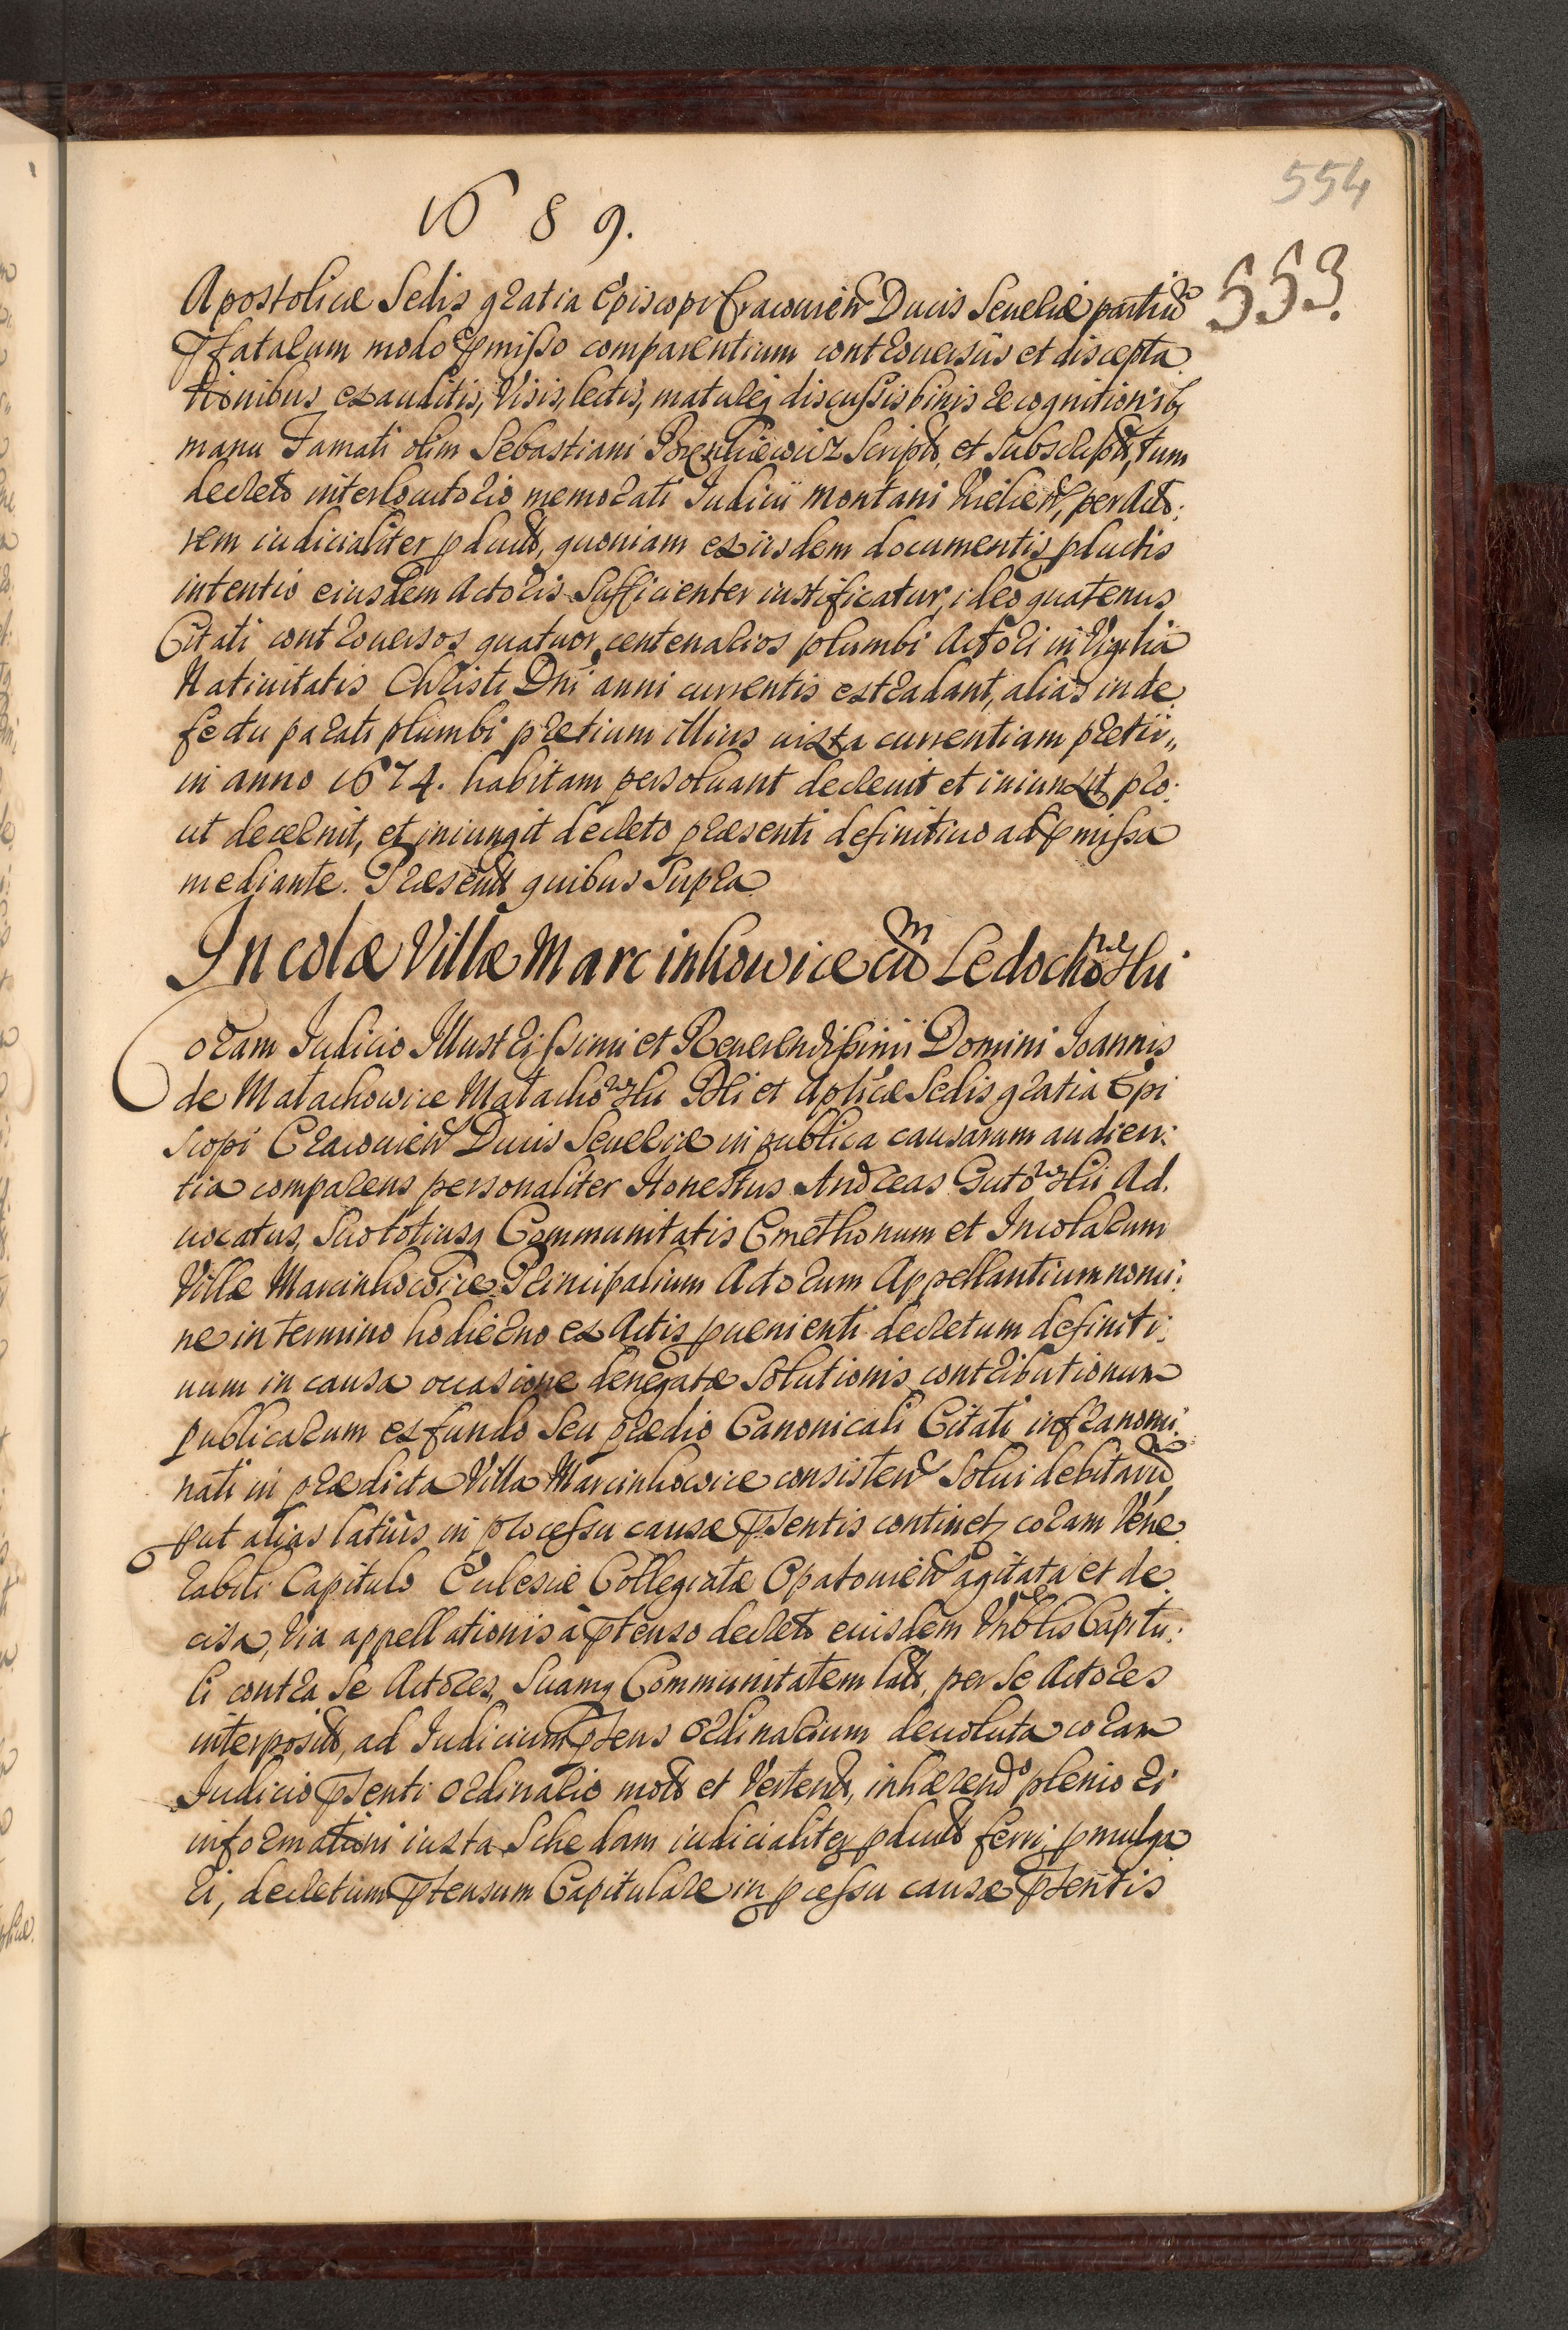 554
1689.
553.
Apostolicæ Sedis gratia Episcopi Cracovień Ducis Severiæ partiu͠
Pfatarum modo pmisso comparentium controuersiis et discepta
tionibus exauditis, Visis, lectis, matureq discussis binis recognitionib9
manu Famati olim Sebastiani scriptis, et subscriptis, tum
decreto interlocutorio memorati Iudicii montani Vielicień, per Acto:
rem iudicialiter pductis, quoniam ex iisdem documentis pductis
intentio eiusdem Actoris sufficienter iustificatur, ideo quatenus
Citati controuersos quatuor centenarios plumbi Actori in Vigilia
Natiuitatis Christi Dni anni currentis extradant, alias in de
fectu parati plumbi prætium illius iuxta currentiam pretii,,
in anno 1674. habitam persoluant decreuit et iniunxit pro:
ut decernit, et iniungit decreto præsenti definitiuo ad pmissa
mediante. Præsentibus quibus Supra
Incolæ Villæ Marcinkowice cu͠m Ledochowski
Coram Iudicio Illustrissimi et Reuerendissimi Domini Ioannis
de Małachowice Małachowski Dei et Aplicæ Sedis gratia Epi
scopi Cracouień Ducis Seueriæ in publica causarum audien:
tia comparens personaliter Honestus Andreas Gutowski Ad,
uocatus, Suo totiusq Communitatis Cmethonum et Incolarum
Villæ Marcinkowice Principalium Actorum Appellantium nomi:
ne in termino hodierno ex Actis puenienti decretum definiti:
uum in causa occasione denegatæ solutionis contributionum
publicarum ex fundo seu prædio Canonicali Citati infranomi:
nati in prædicta Villa Marcinkowice consisteń solui debitaru͠,
put alias latius in processu causæ psentis continetz coram Vene
rabili Capitulo Eclesiæ Collegiatæ Opatouień agitata et de
cisa, Via appellationis à ptenso decreto eiusdem Vnblis Capitu:
li contra se Actores, suamq Communitatem lato, per se Actores
interposita, ad Iudicium psens Ordinarium deuoluta coram
Iudicio psenti ordinario mota et Vertente, inhærendo plenio ri
informationi iuxta Schedam iudicialiter pductam ferri, pmulga
ri, decretum ptensum Capitulare in pcessu causæ psentis